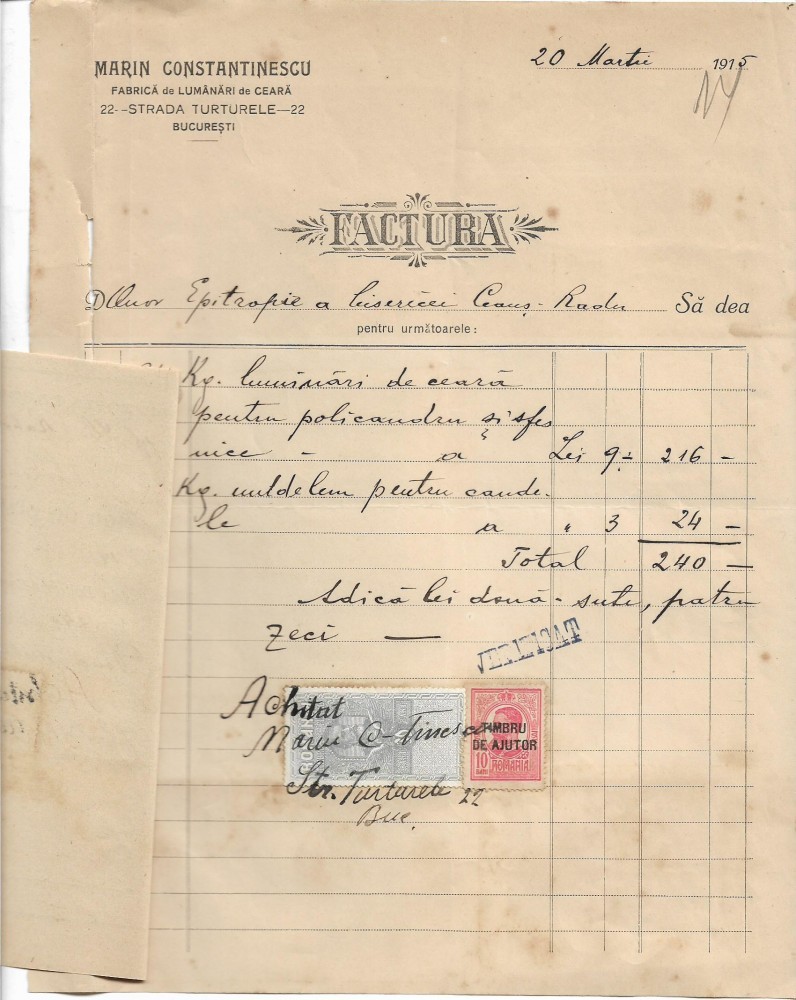 20 Martie 1915
MARIN CONSTANTINESCU
FABRICĂ de LUMÂNĂRI de CEARĂ
22--STRADA TURTURELE—22
BUCUREȘTI
FACTURA
D Onor Epitropie a bisericei Ceauș-Radu Să dea
pentru următoarele:
Kg. lumînări de ceară
pentru policandru și sfeș
nice - a Lei 9 - 216 -
Kg. untdelem pentru cande-
le a " 3 24 -
Total 240 —
Adică lei două-sute, patru
zeci —
VERIFICAT
Achitat
Marin C-tinescu
Str. Turturele 22
Buc.
TIMBRU
DE AJUTOR
10
BANI
ROMANIA